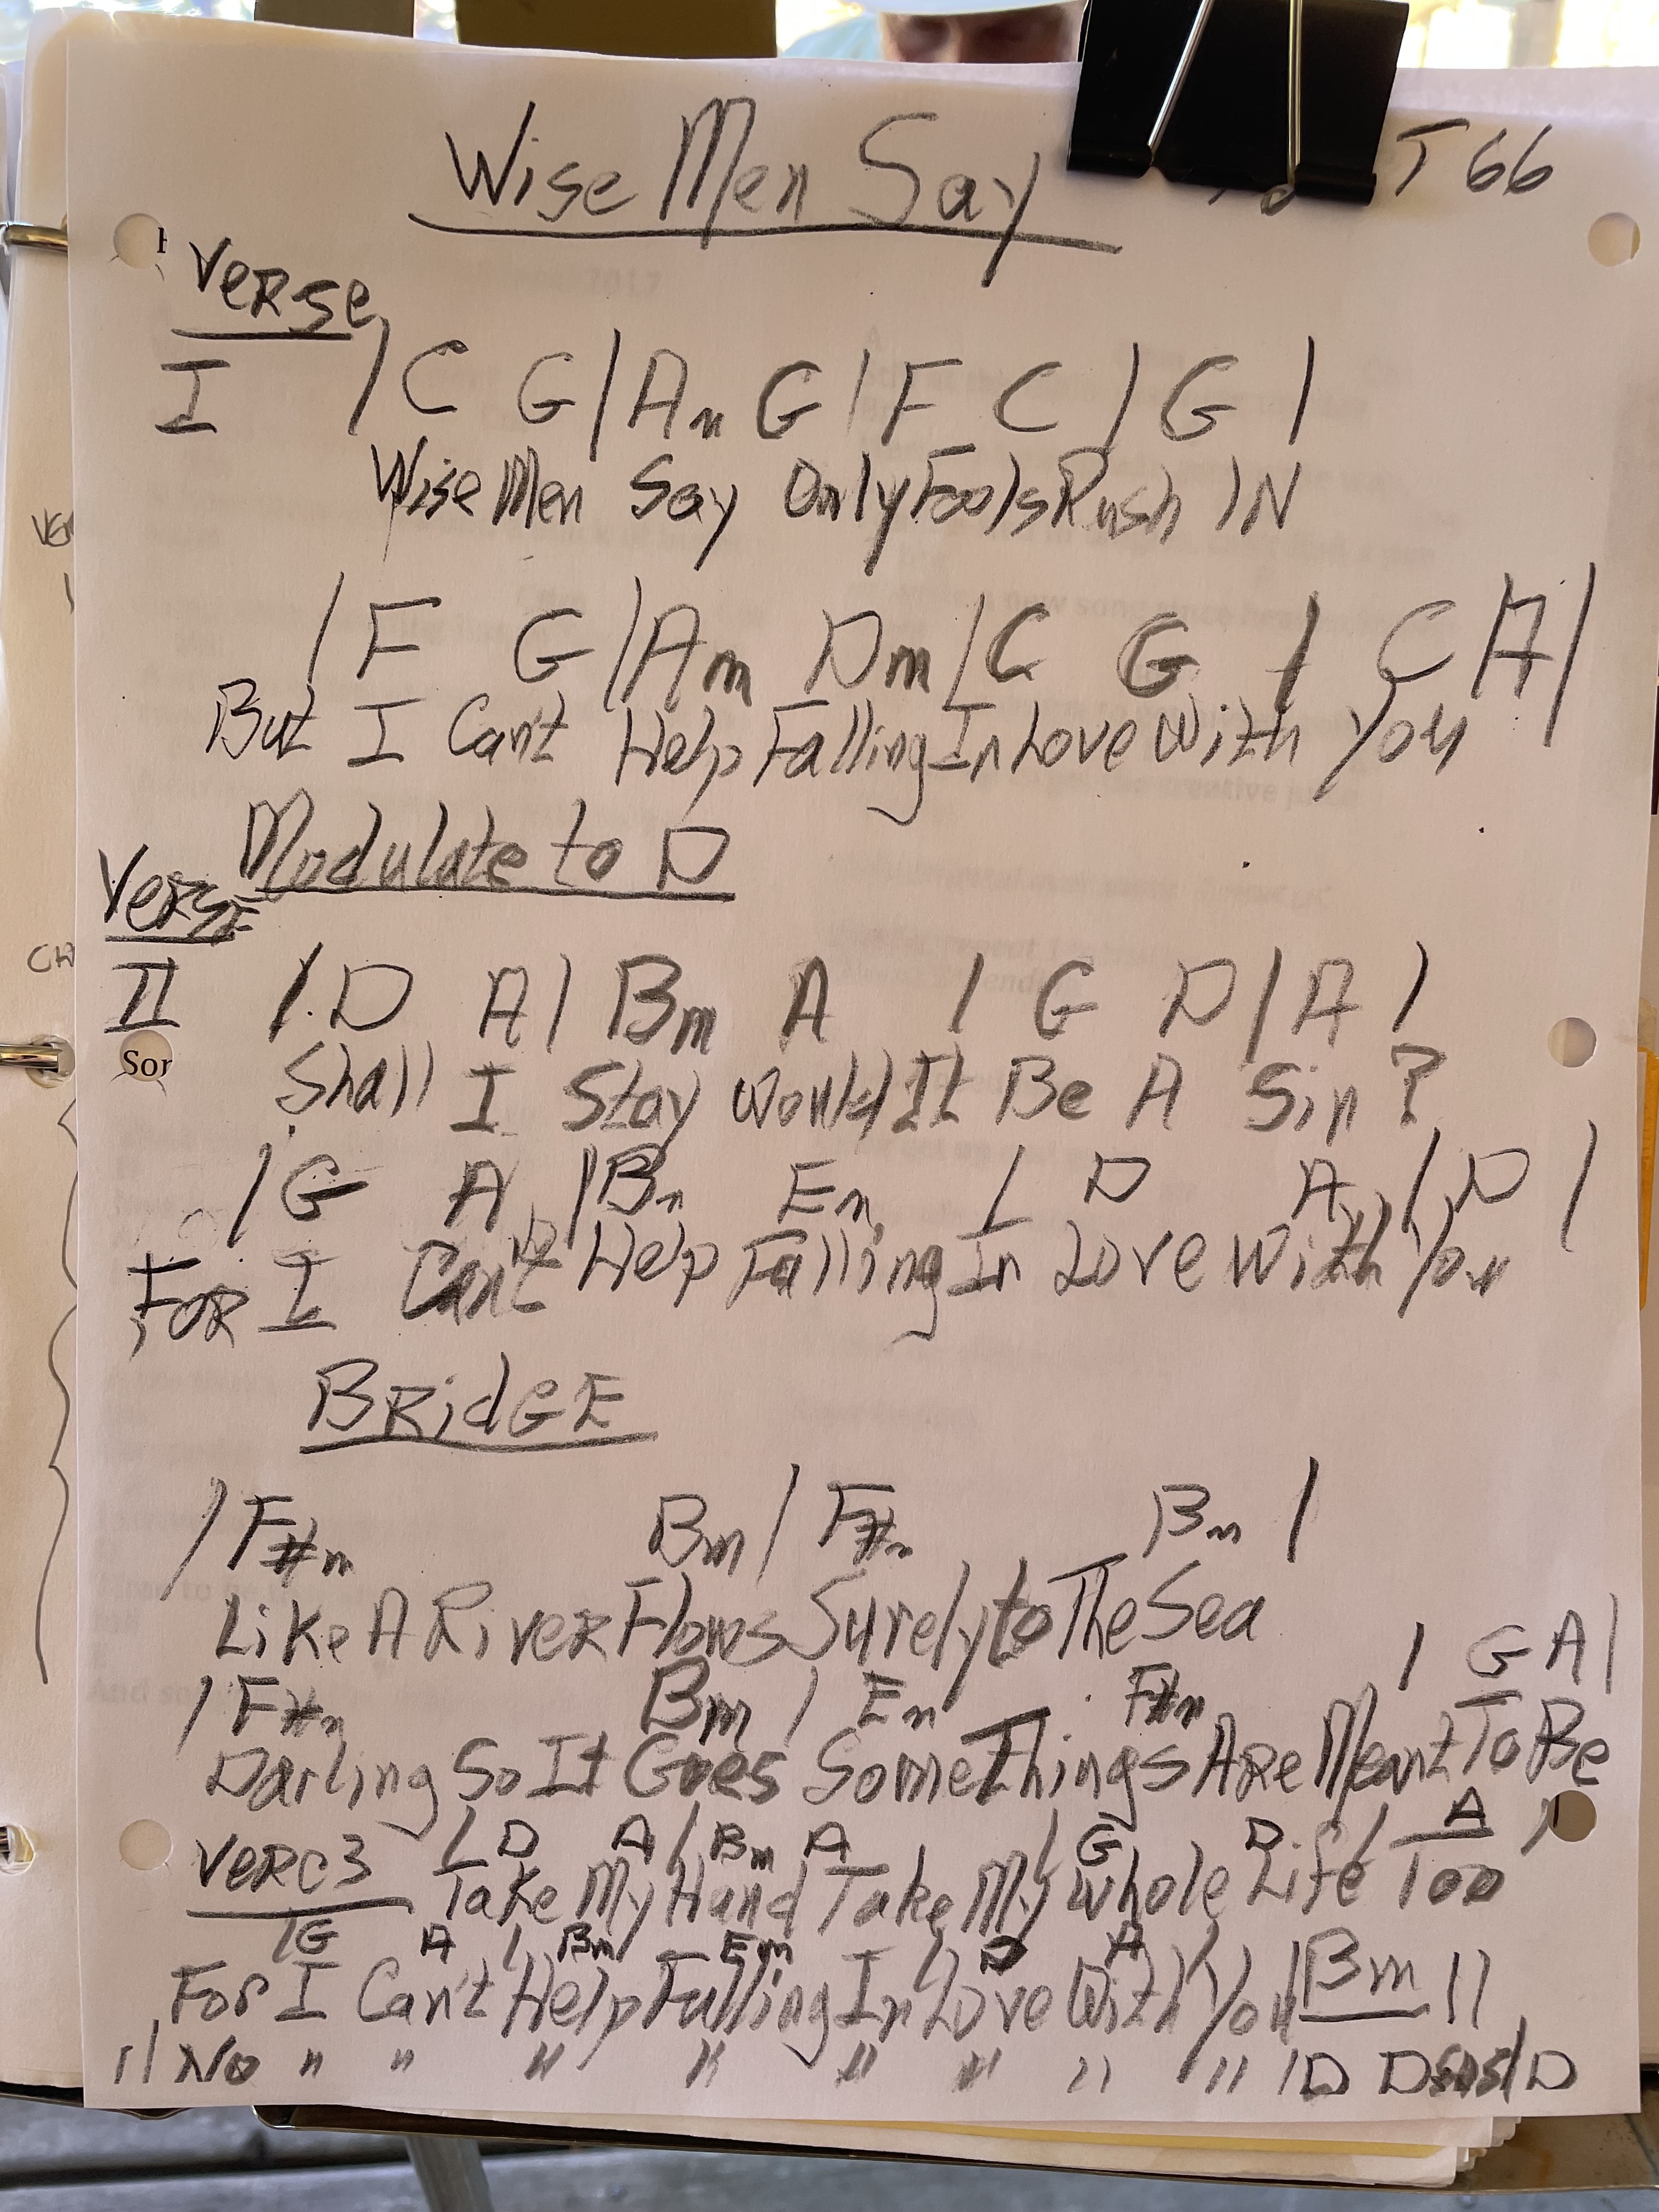 Wise Men Say T 66
Verse
I / C G / Am G / F C / G /
Wise Men Say Only Fools Rush IN
/ F G / Am Dm / C G / C A /
But I Can't Help Falling In Love With You
Modulate to D
Verse
II / D A / Bm A / G D / A /
Sor
Shall I Stay Would It Be A Sin?
/ G A / Bm Em / D A / D /
FOR I Can't Help Falling In Love With You
BRidGE
/ F#m Bm / F#m Bm /
Like A RiveR Flows Surely to The Sea
/ F#m Bm / Em F#m / G A /
Darling So It Goes Some Things ARe Meant To Be
/ D A / Bm A / G D / A /
VeRC 3 Take My Hand Take My Whole Life Too
/ G A / Bm Em / D A / Bm //
For I Can't Help Falling In Love With You
// No " " " " " " " " / D Dsus / D